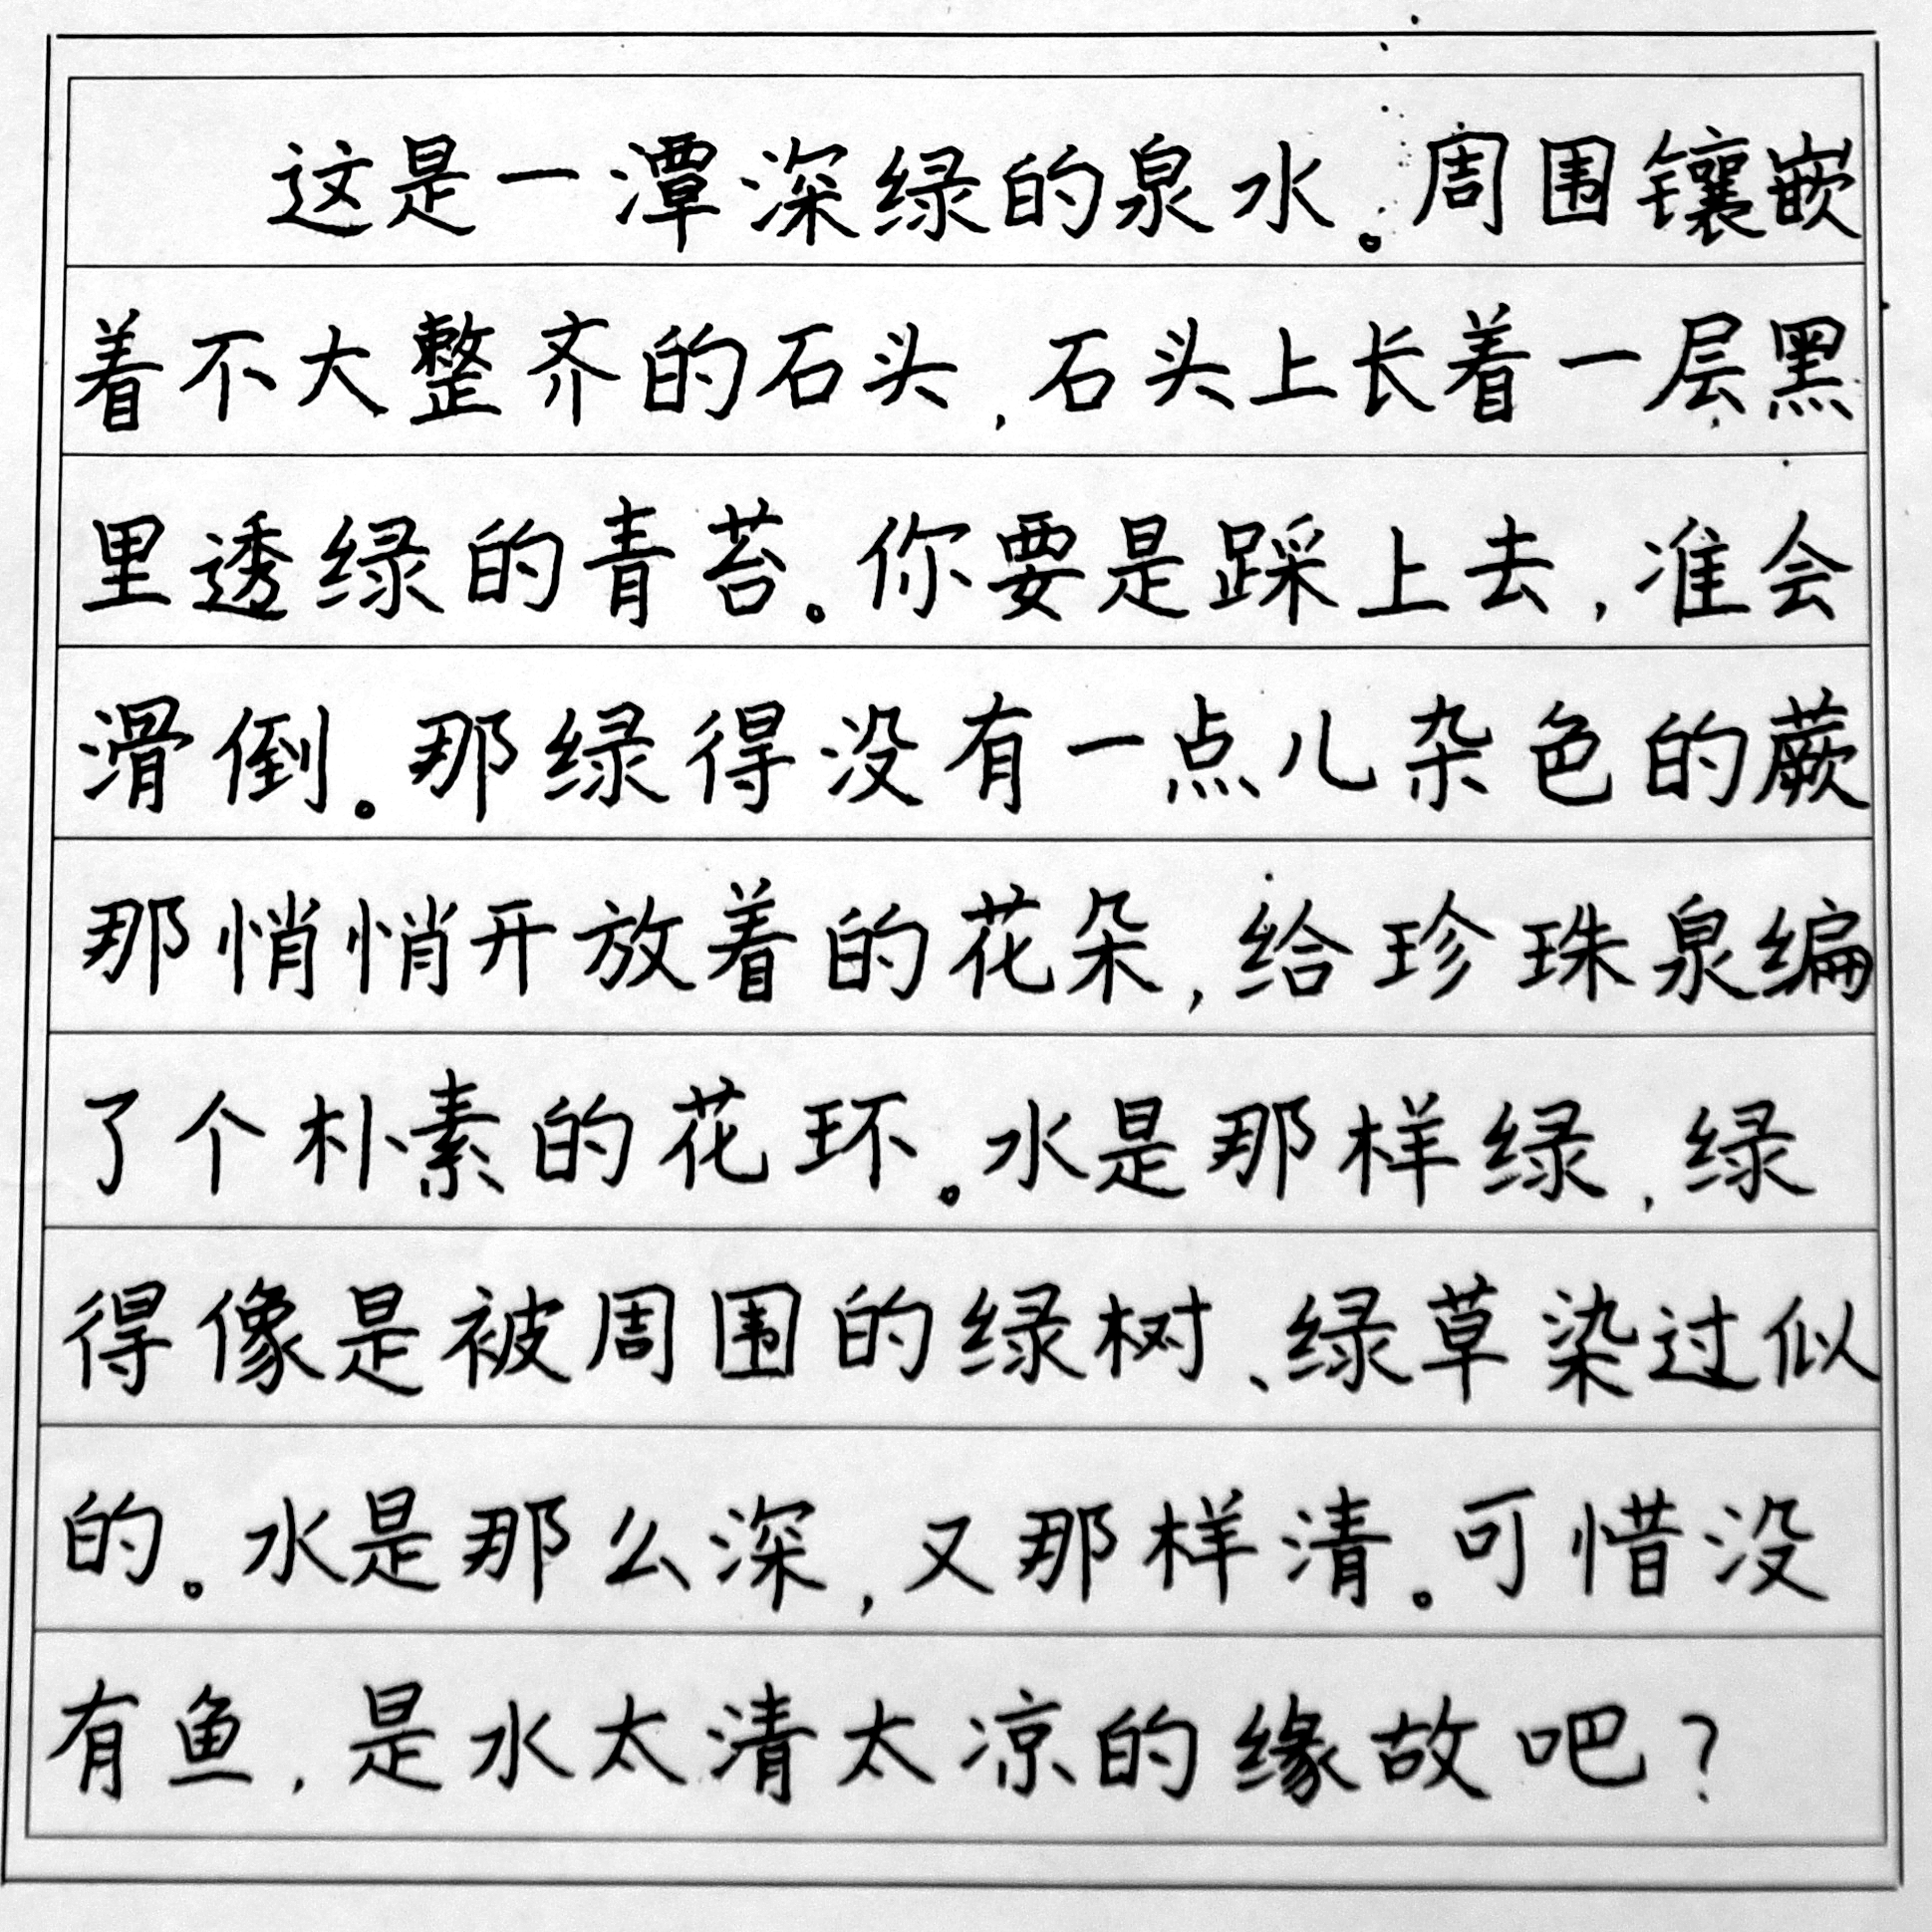 这是一潭深绿的泉水。周围镶嵌
着不大整齐的石头,石头上长着一层黑
里透绿的青苔。你要是踩上去,准会
滑倒。那绿得没有一点儿杂色的蕨
那悄悄开放着的花朵,给珍珠泉编
了个朴素的花环。水是那样绿,绿
得像是被周围的绿树、绿草染过似
的。水是那么深,又那样清。可惜没
有鱼,是水太清太凉的缘故吧?